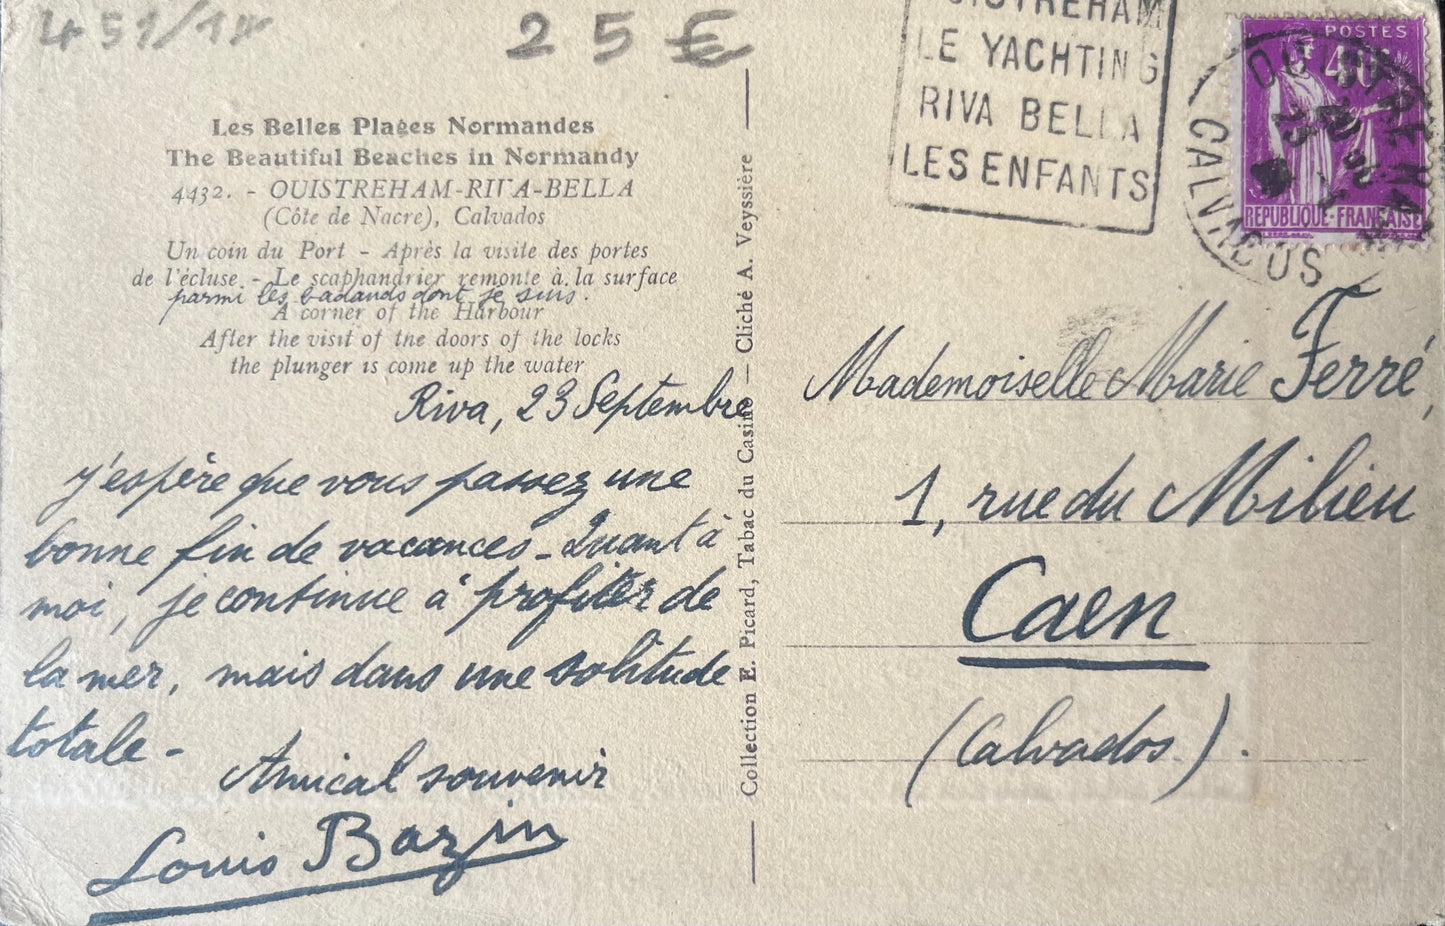 451/12
25 €
Les Belles Plages Normandes
The Beautiful Beaches in Normandy
4432. - OUISTREHAM-RIVA-BELLA
(Côte de Nacre), Calvados
Un coin du Port - Après la visite des portes
de l'écluse - Le scaphandrier remonte à la surface
parmi les badauds dont je suis.
A corner of the Harbour
After the visit of the doors of the locks
the plunger is come up the water
Riva, 23 Septembre
J'espère que vous passez une
bonne fin de vacances - Quant à
moi, je continue à profiter de
la mer, mais dans une solitude
totale -
Amical souvenir
Louis Bazin
Collection E. Picard, Tabac du Casino — Cliché A. Veyssière
OUISTREHAM
LE YACHTING
RIVA BELLA
LES ENFANTS
POSTES
40c
REPUBLIQUE-FRANÇAISE
OUISTREHAM
CALVADOS
Mademoiselle Marie Ferré,
1, rue du Milieu
Caen
(Calvados).